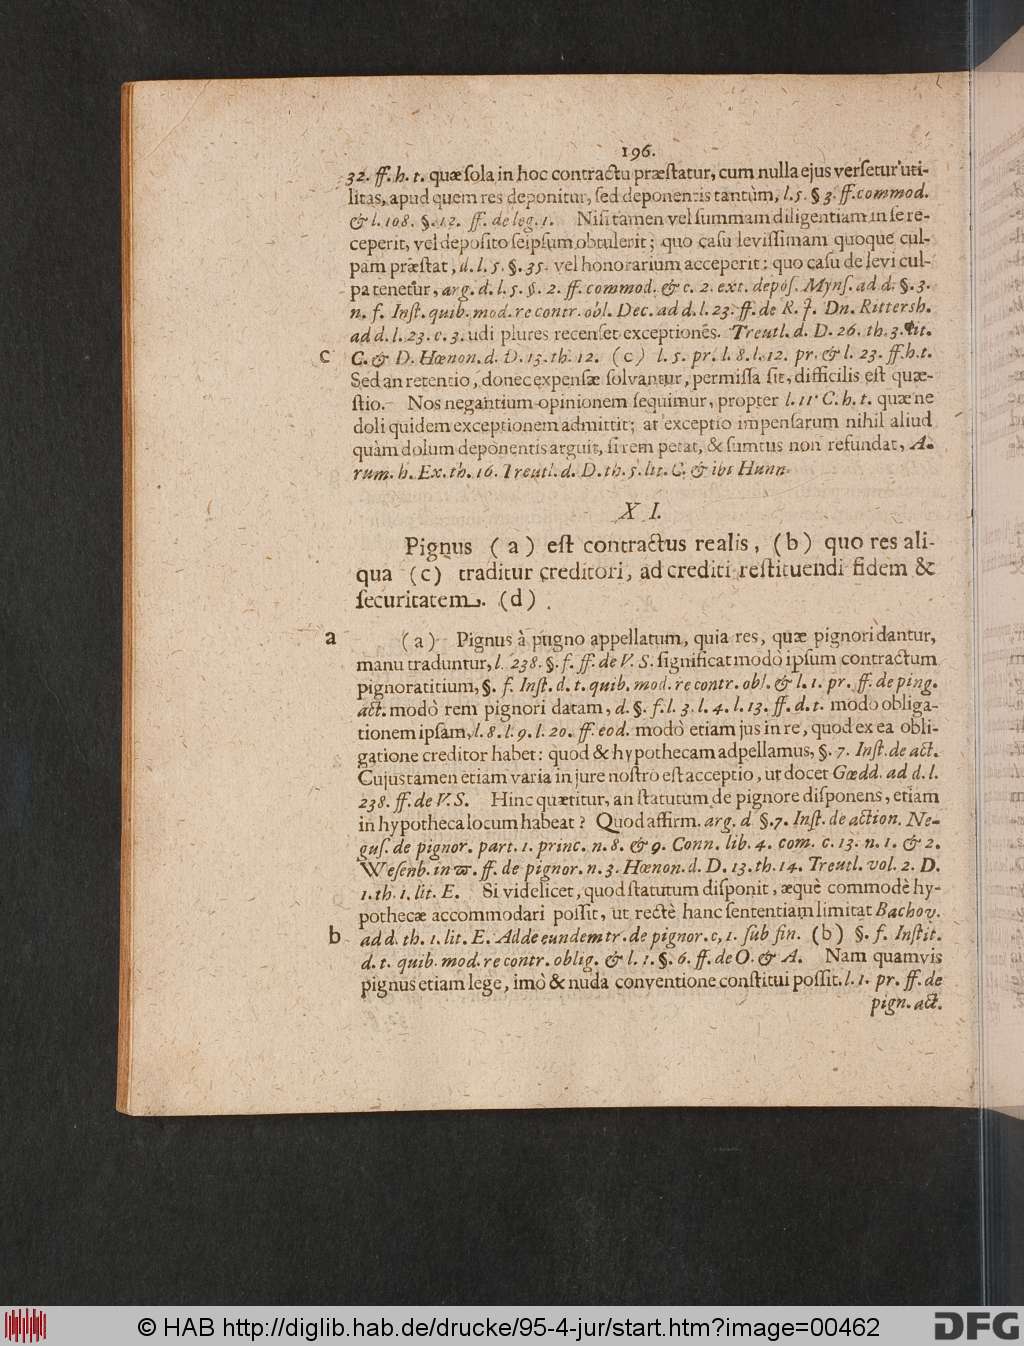 196.
32. ff. h. t. quæ sola in hoc contractu præstatur, cum nulla ejus versetur uti-
litas, apud quem res deponitur, sed deponentis tantùm, l. 5. § 3. ff. commod.
& l. 108. §. 12. ff. de leg. 1. Nisi tamen vel summam diligentiam in se re-
ceperit, vel deposito seipsum obtulerit; quo casu levissimam quoque cul-
pam præstat, d. l. 5. §. 35. vel honorarium acceperit: quo casu de levi cul-
pa tenetur, arg. d. l. 5. §. 2. ff. commod. & c. 2. ext. depos. Myns. ad d. §. 3.
n. f. Inst. quib. mod. re contr. obl. Dec. ad d. l. 23. ff. de R. J. Dn. Rittersh.
ad d. l. 23. c. 3. udi plures recenset exceptiones. Treutl. d. D. 26. th. 3. lit.
c C. & D. Hœnon. d. D. 13. th. 12. (c) l. 5. pr. l. 8. l. 12. pr. & l. 23. ff. h. t.
Sed an retentio, donec expensæ solvantur, permissa sit, difficilis est quæ-
stio. Nos negantium opinionem sequimur, propter l. 11 C. h. t. quæ ne
doli quidem exceptionem admittit; at exceptio impensarum nihil aliud
quàm dolum deponentis arguit, si rem petat, & sumtus non refundat, A-
rum. h. Ex. th. 16. Treutl. d. D. th. 5. lit. C. & ibi Hunn.
X I.
Pignus (a) est contractus realis, (b) quo res ali-
qua (c) traditur creditori, ad crediti restituendi fidem &
securitatem. (d)
a (a) Pignus à pugno appellatum, quia res, quæ pignori dantur,
manu traduntur, l. 238. §. f. ff. de V. S. significat modò ipsum contractum
pignoratitium, §. f. Inst. d. t. quib. mod. re contr. obl. & l. 1. pr. ff. de ping.
act. modò rem pignori datam, d. §. f. l. 3. l. 4. l. 13. ff. d. t. modo obliga-
tionem ipsam, l. 8. l. 9. l. 20. ff. eod. modò etiam jus in re, quod ex ea obli-
gatione creditor habet: quod & hypothecam adpellamus, §. 7. Inst. de act.
Cujus tamen etiam varia in jure nostro est acceptio, ut docet Gœdd. ad d. l.
238. ff. de V. S. Hinc quæritur, an statutum de pignore disponens, etiam
in hypotheca locum habeat? Quod affirm. arg. d §. 7. Inst. de action. Ne-
gus. de pignor. part. 1. princ. n. 8. & 9. Conn. lib. 4. com. c. 13. n. 1. & 2.
Wesenb. in ϖ. ff. de pignor. n. 3. Hœnon. d. D. 13. th. 14. Treutl. vol. 2. D.
1. th. 1. lit. E. Si videlicet, quod statutum disponit, æquè commodè hy-
pothecæ accommodari possit, ut rectè hanc sententiam limitat Bachov.
b ad d. th. 1. lit. E. Adde eundem tr. de pignor. c, 1. sub fin. (b) §. f. Instit.
d. t. quib. mod. re contr. oblig. & l. 1. §. 6. ff. de O. & A. Nam quamvis
pignus etiam lege, imò & nuda conventione constitui possit. l. 1. pr. ff. de
pign. act.
© HAB http://diglib.hab.de/drucke/95-4-jur/start.htm?image=00462
DFG